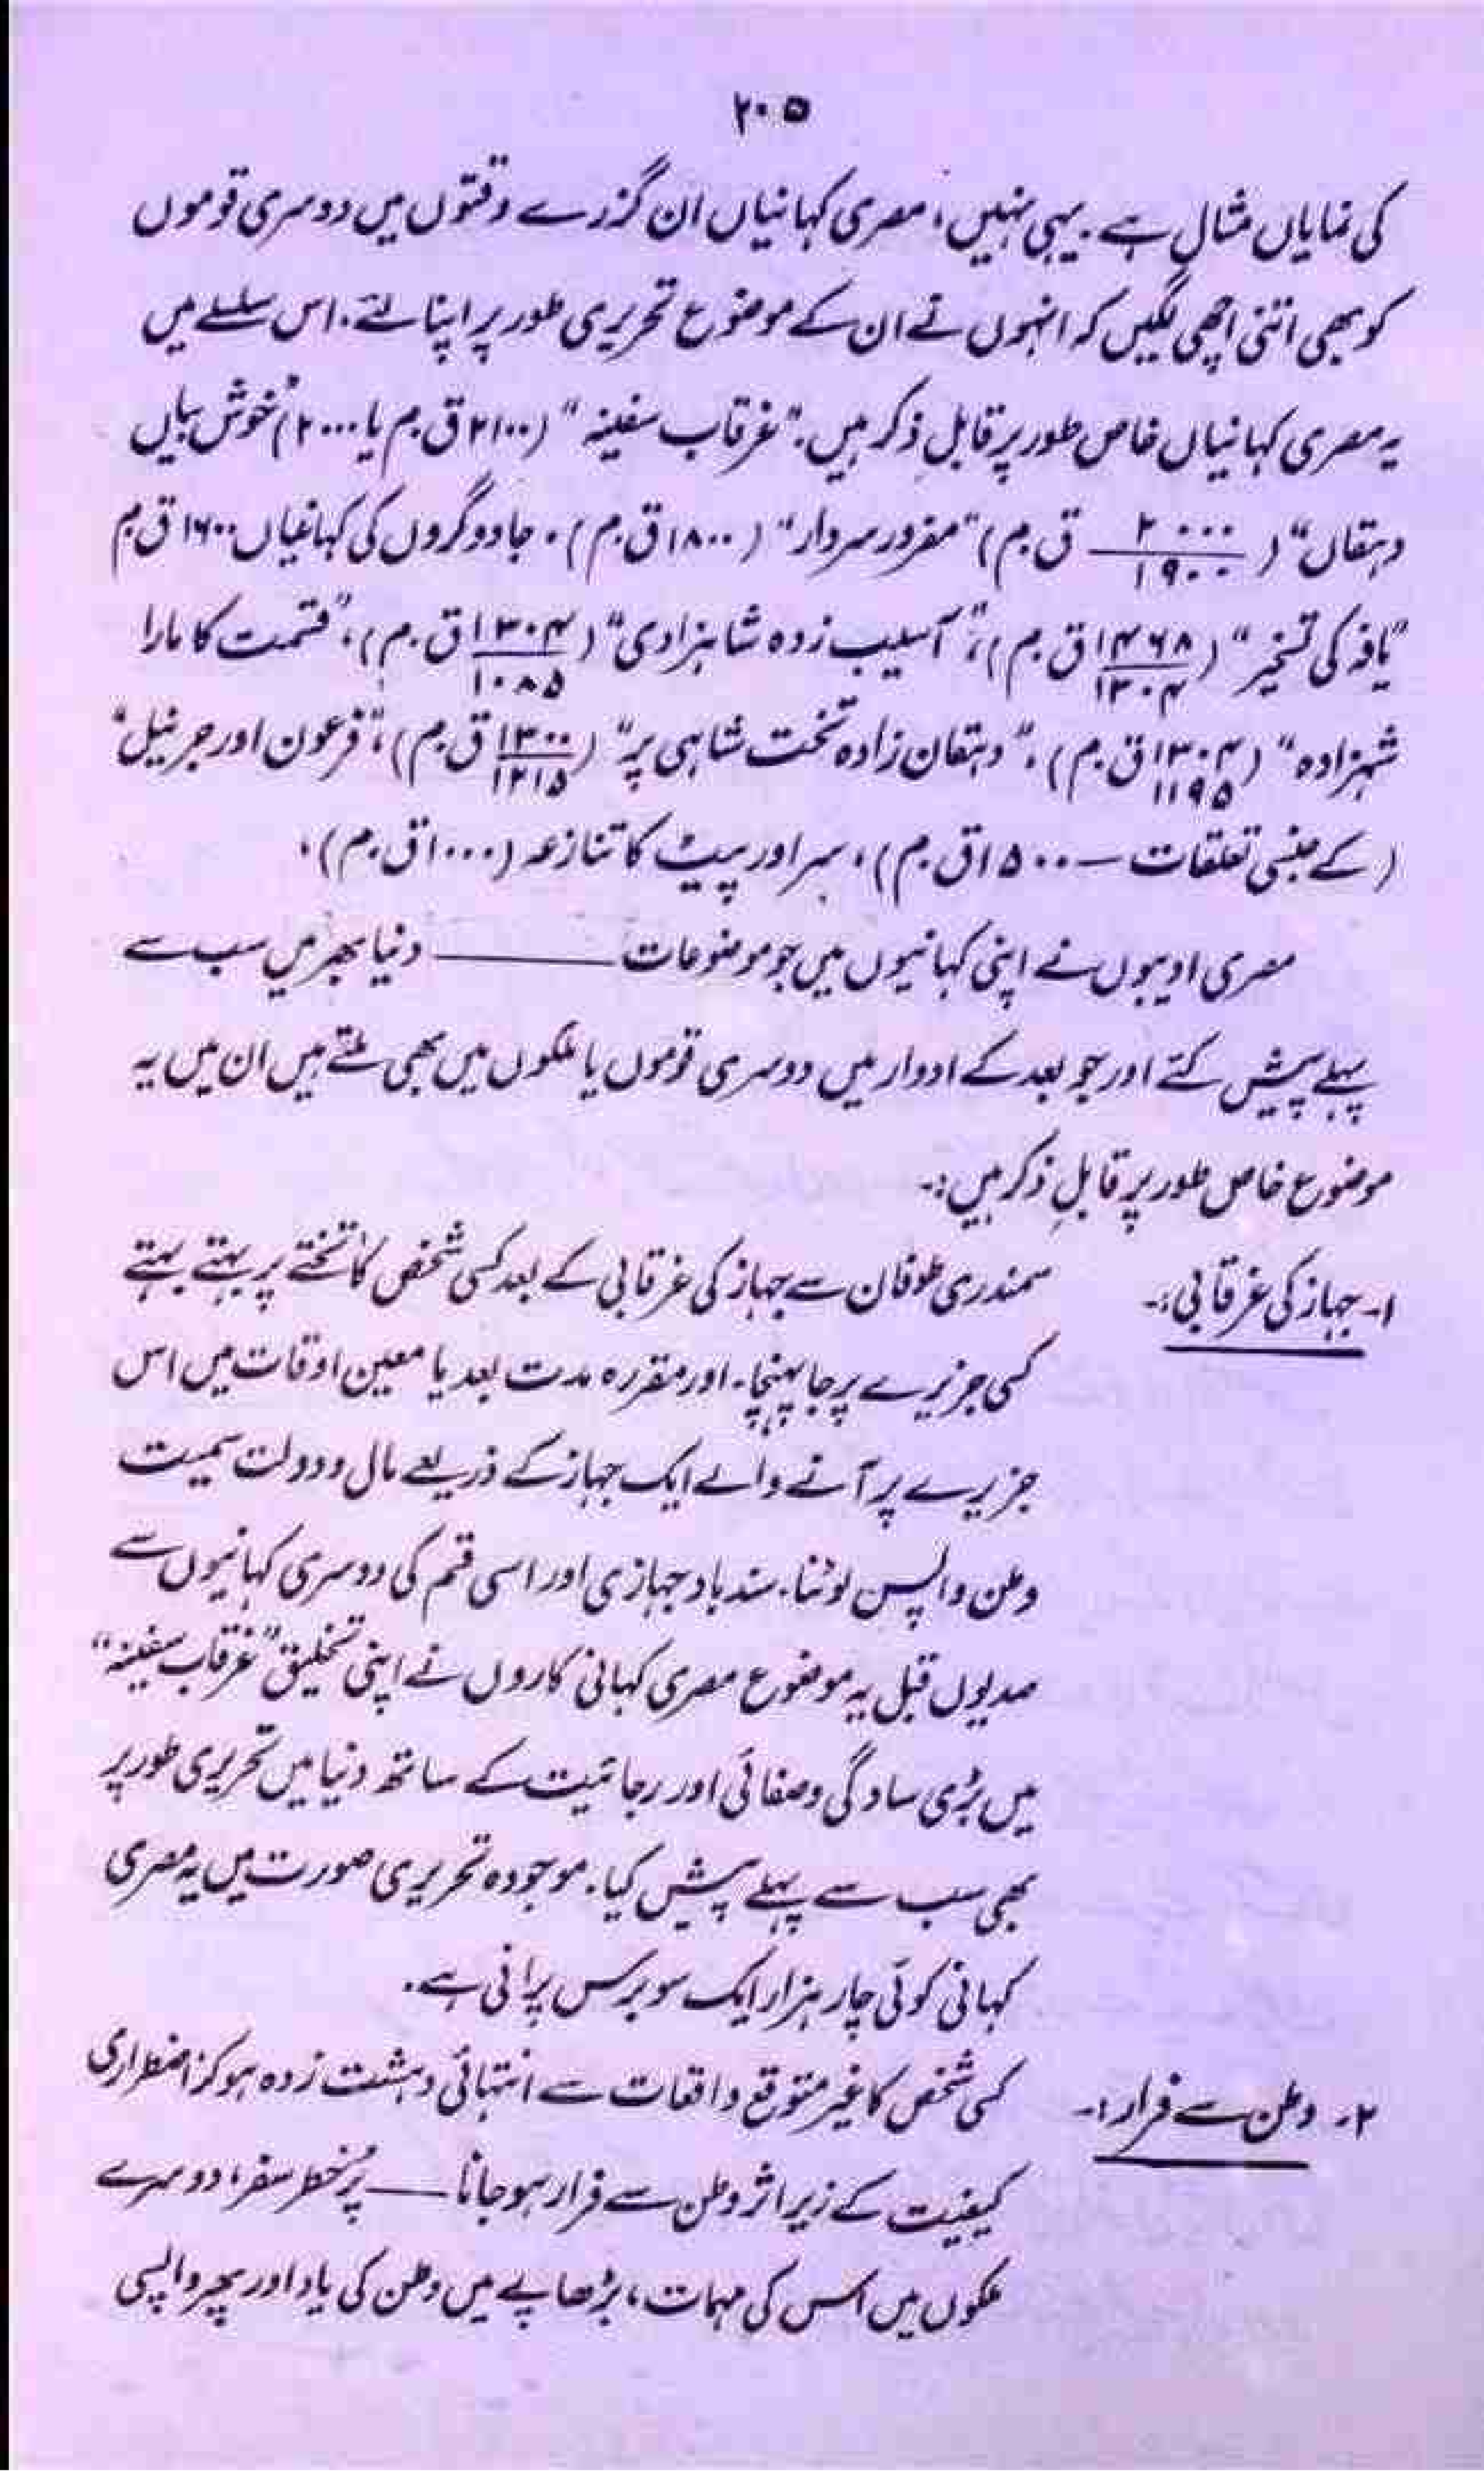 ۲۰۵
کی نمایاں مثال ہے۔ یہی نہیں، مصری کہانیاں ان گزرے وقتوں میں دوسری قوموں
کو بھی اتنی اچھی لگیں کہ انہوں نے ان کے موضوع تحریری طور پر اپنا لئے۔ اس سلسلے میں
یہ مصری کہانیاں خاص طور پر قابلِ ذکر ہیں۔ "غرقاب سفینہ" (۲۱۰۰ ق.م یا ۲۰۰۰) "خوش بیاں
دہقاں" (۲۰۰۰/۱۹۰۰ ق.م) "مفرور سردار" (۱۸۰۰ ق.م)۔ جادوگروں کی کہانیاں ۱۶۰۰ ق.م
"یافہ کی تسخیر" (۱۴۶۸/۱۳۰۴ ق.م)، "آسیب زدہ شاہزادی" (۱۳۰۴/۱۰۸۵ ق.م)، "قسمت کا مارا
شہزادہ" (۱۳۰۴/۱۱۹۵ ق.م)، "دہقان زادہ تخت شاہی پر" (۱۳۰۰/۱۲۱۵ ق.م)، "فرعون اور جرنیل"
(کے جنسی تعلقات — ۱۵۰۰ ق.م)، سر اور پیٹ کا تنازعہ (۱۰۰۰ ق.م)،
مصری ادیبوں نے اپنی کہانیوں میں جو موضوعات ——— دنیا بھر میں سب سے
پہلے پیش کئے اور جو بعد کے ادوار میں دوسری قوموں یا ملکوں میں بھی ملتے ہیں ان میں یہ
موضوع خاص طور پر قابلِ ذکر ہیں:۔
۱۔ جہاز کی غرقابی:۔ سمندری طوفان سے جہاز کی غرقابی کے بعد کسی شخص کا تختے پر بہتے بہتے
کسی جزیرے پر جا پہنچا۔ اور مقررہ مدت بعد یا معین اوقات میں اس
جزیرے پر آنے والے ایک جہاز کے ذریعے مال و دولت سمیت
وطن واپس لوٹنا۔ سندباد جہازی اور اسی قسم کی دوسری کہانیوں سے
صدیوں قبل یہ موضوع مصری کہانی کاروں نے اپنی تخلیق "غرقاب سفینہ"
میں بڑی سادگی و صفائی اور رجائیت کے ساتھ دنیا میں تحریری طور پر
بھی سب سے پہلے پیش کیا۔ موجودہ تحریری صورت میں یہ مصری
کہانی کوئی چار ہزار ایک سو برس پرانی ہے۔
۲۔ وطن سے فرار:۔ کسی شخص کا غیر متوقع واقعات سے انتہائی دہشت زدہ ہو کر اضطراری
کیفیت کے زیر اثر وطن سے فرار ہو جانا — پُرخطر سفر، دوسرے
ملکوں میں اس کی مہمات، بڑھاپے میں وطن کی یاد اور پھر واپسی